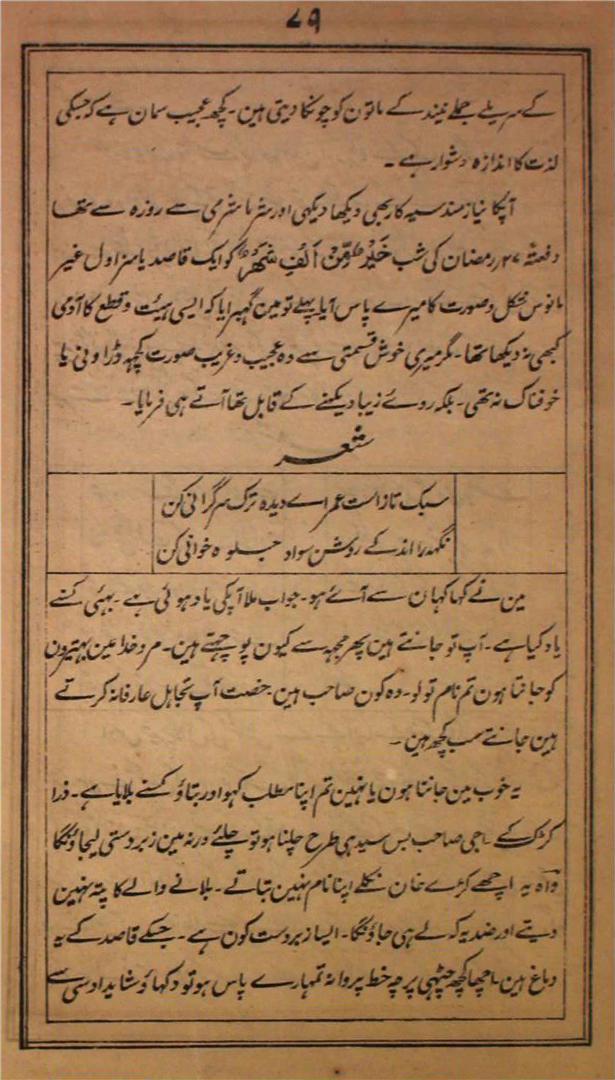 ۷۹
کے سریلے جملے نیند کے ماتون کو چونکا دیتی ہین۔ کچھ عجیب سمان ہے کہ جسکی
لذت کا اندازہ دشوار ہے۔
آپکا نیازمند سیہ کار بھی دیکھا دیکھی اور شرما شرمی سے روزہ سے تھا
دفعتہً ۲۷ رمضان کی شب خَیْرٌ مِّنْ اَلْفِ شَہْرٍ کو ایک قاصد یا سزاول غیر
مانوس شکل و صورت کا میرے پاس آیا پہلے تو مین گھبرایا کہ ایسی ہیئت و قطع کا آدمی
کبھی نہ دیکھا تھا۔ مگر میری خوش قسمتی سے وہ عجیب و غریب صورت کچھہ ڈراونی یا
خوفناک نہ تھی۔ بلکہ روے زیبا دیکھنے کے قابل تھا آتے ہی فرمایا۔
شعر
سبک تاز است عمر اے دیدہ ترک سرگرانی کن
نگہدر اندکے روشن سواد جلوہ خوانی کن
مین نے کہا کہان سے آئے ہو۔ جواب ملا آپکی یاد ہوئی ہے۔ بھئی کسنے
یاد کیا ہے۔ آپ تو جانتے ہین پھر مجھہ سے کیون پوچھتے ہین۔ مرد خدا مین بہتیرون
کو جانتا ہون تم نام تو لو۔ وہ کون صاحب ہین۔ حضت آپ تجاہل عارفانہ کرتے
ہین جانتے سب کچھ ہین۔
یہ خوب مین جانتا ہون یا نہین تم اپنا مطلب کہو اور بتاؤ کسنے بلایا ہے۔ ذرا
کڑک کے۔ اجی صاحب بس سیدہی طرح چلنا ہو تو چلئے ورنہ مین زبردستی لیجاؤنگا
واہ یہ اچھے کڑے خان نکلے اپنا نام نہین بتاتے۔ بلانے والے کا پتہ نہین
دیتے اور ضد یہ کہ لے ہی جاؤنگا۔ ایسا زبردست کون ہے۔ جسکے قاصد کے یہ
دماغ ہین۔ اچھا کچھ چٹھی پرچہ خط پروانہ تمہارے پاس ہو تو دکھاؤ شاید اوسی سے